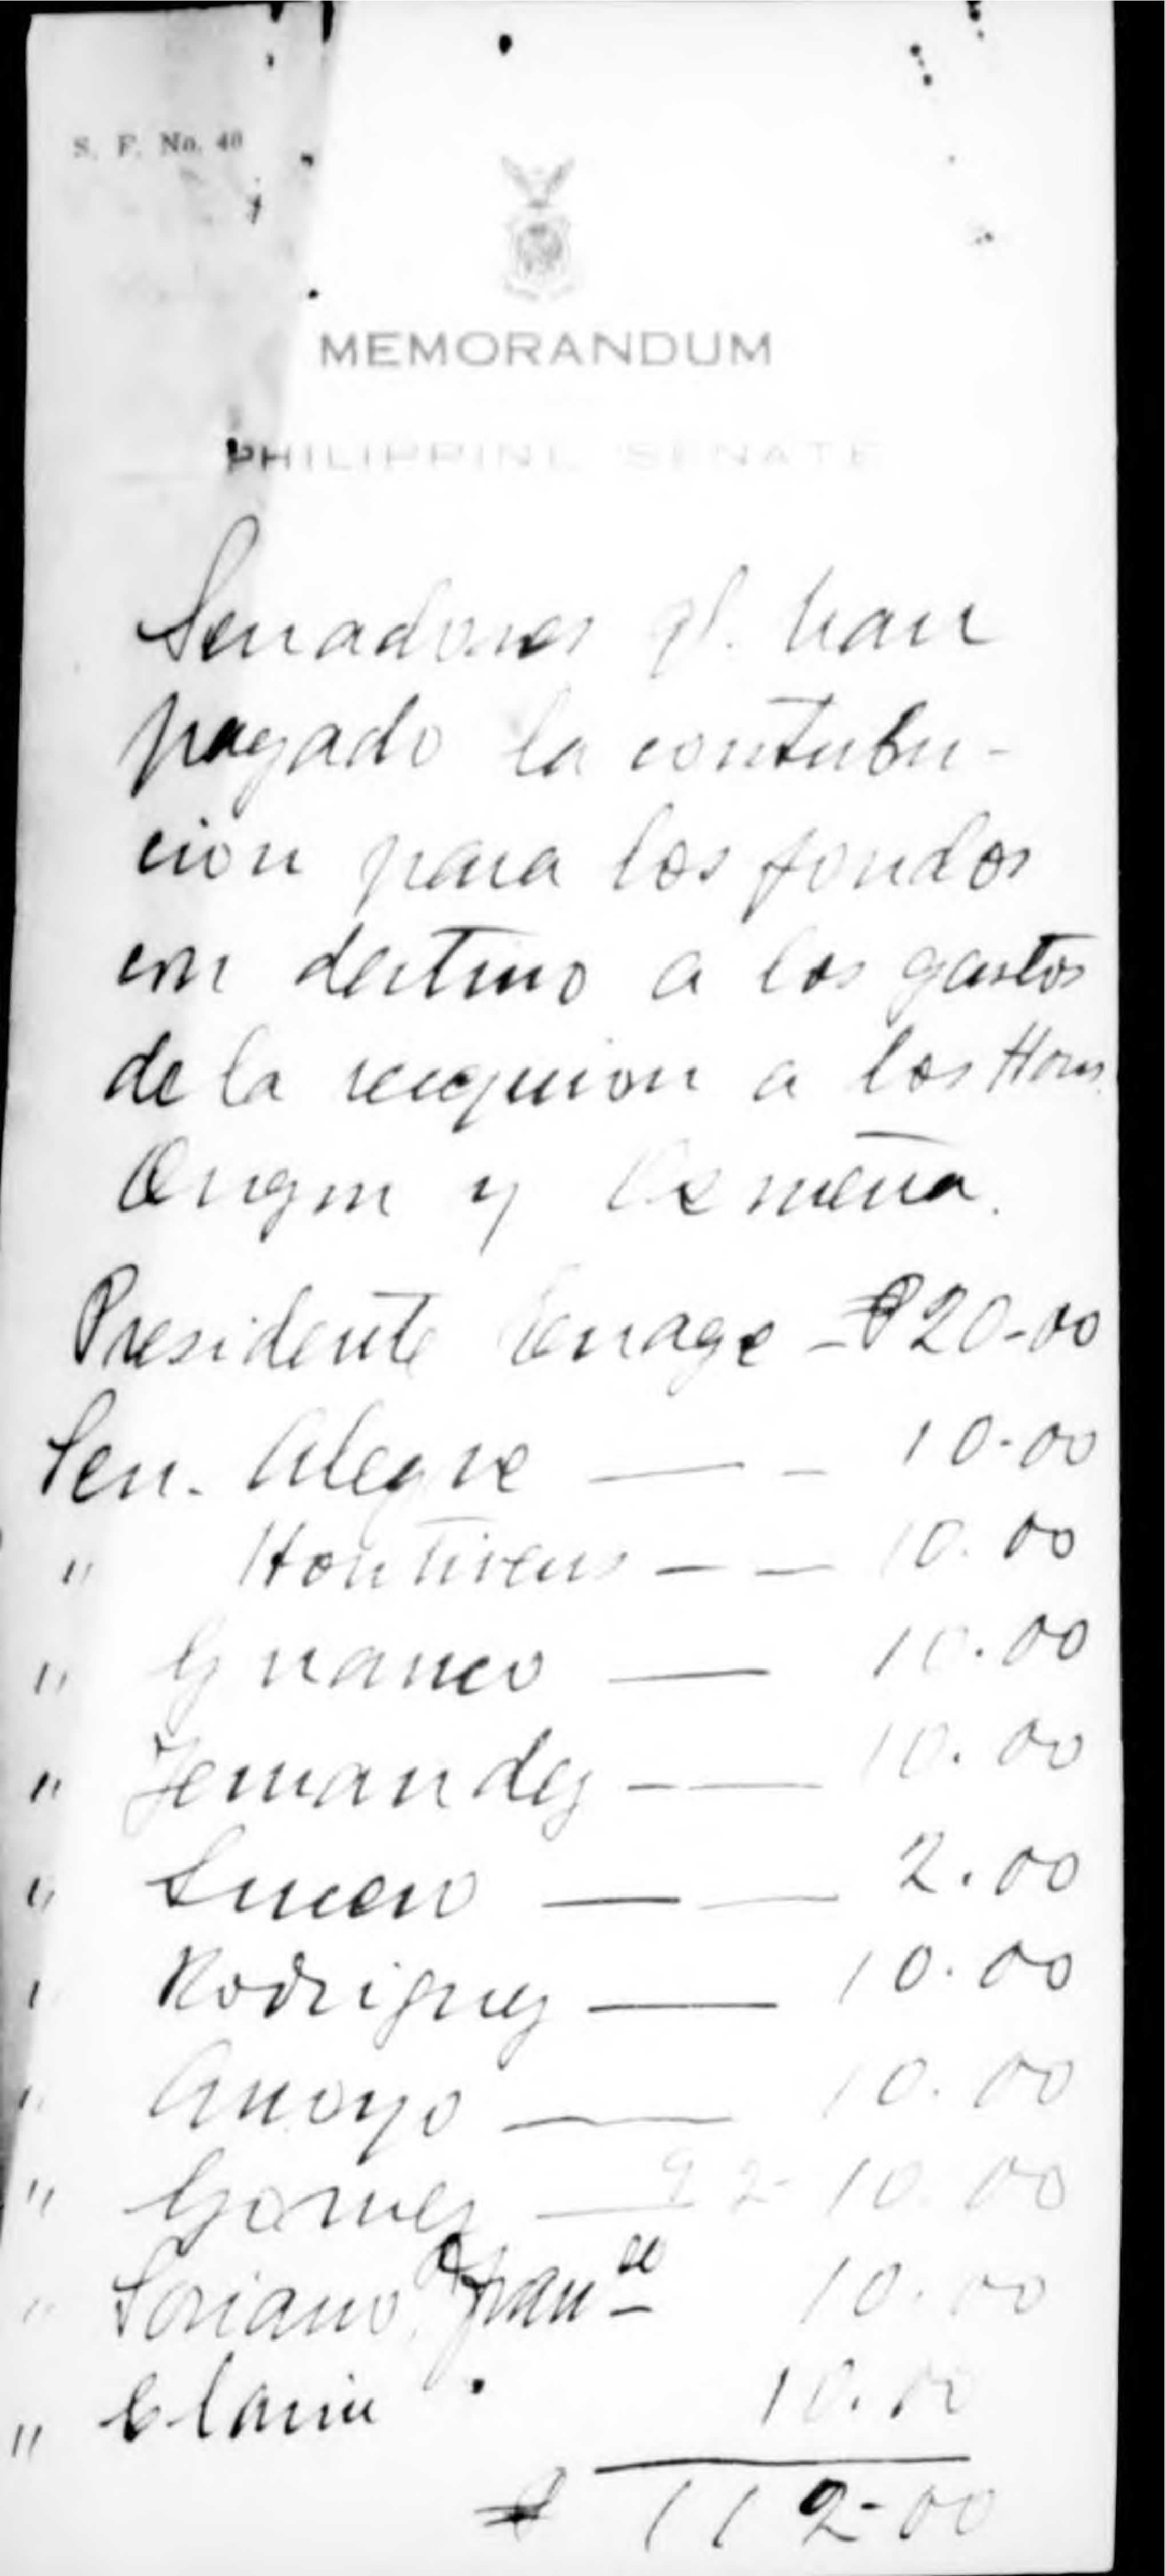 S. F. No. 40
MEMORANDUM
PHILIPPINE SENATE
Senadores q. han
pagado la contribu-
cion para los fondos
con destino a los gastos
de la recepcion a los Hons.
y Osmeña.
Presidente Tenage - ₱20-00
Sen. Alegre — - 10-00
" Hontiveros - — 10.00
" Guanco — 10.00
" Fernandez - — 10.00
" — — 2.00
" Rodriguez — 10.00
" Arroyo — 10.00
" Gomez — 92- 10.00
" Soriano, Franco 10.00
" Clarin 10.00
₱ 112-00